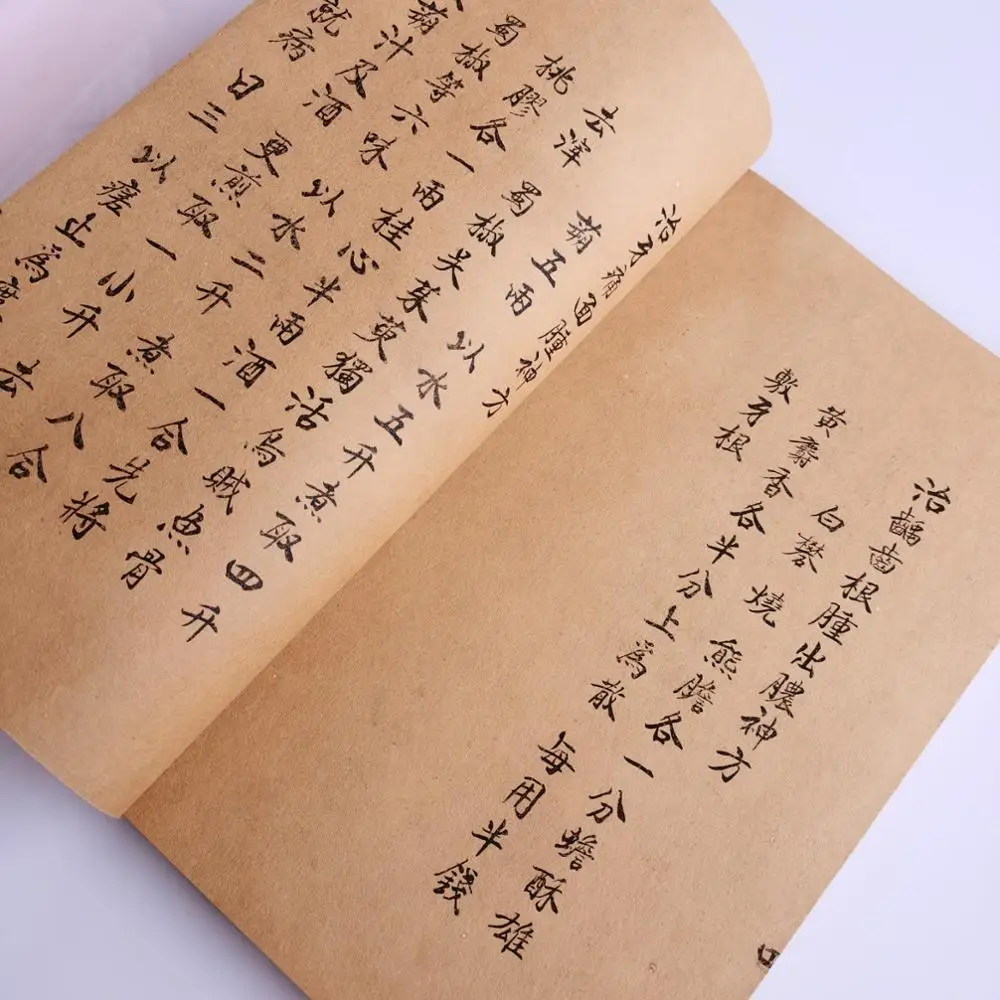 治齲齒根腫出膿神方
白礬燒 熊膽各一分蟾酥雄
黃麝香各半分上為散 每用半錢
敷牙根
治牙痛面腫神方
蒴五兩 以水五升煮取四升
去滓 蜀椒吳茱萸獨活烏賊魚骨
桃膠各一兩桂心半兩酒一合先將
蜀椒等六味 以水二升煮取八合
蒴汁及酒 更煎取一小升 去
就病 日三 以瘥止為度